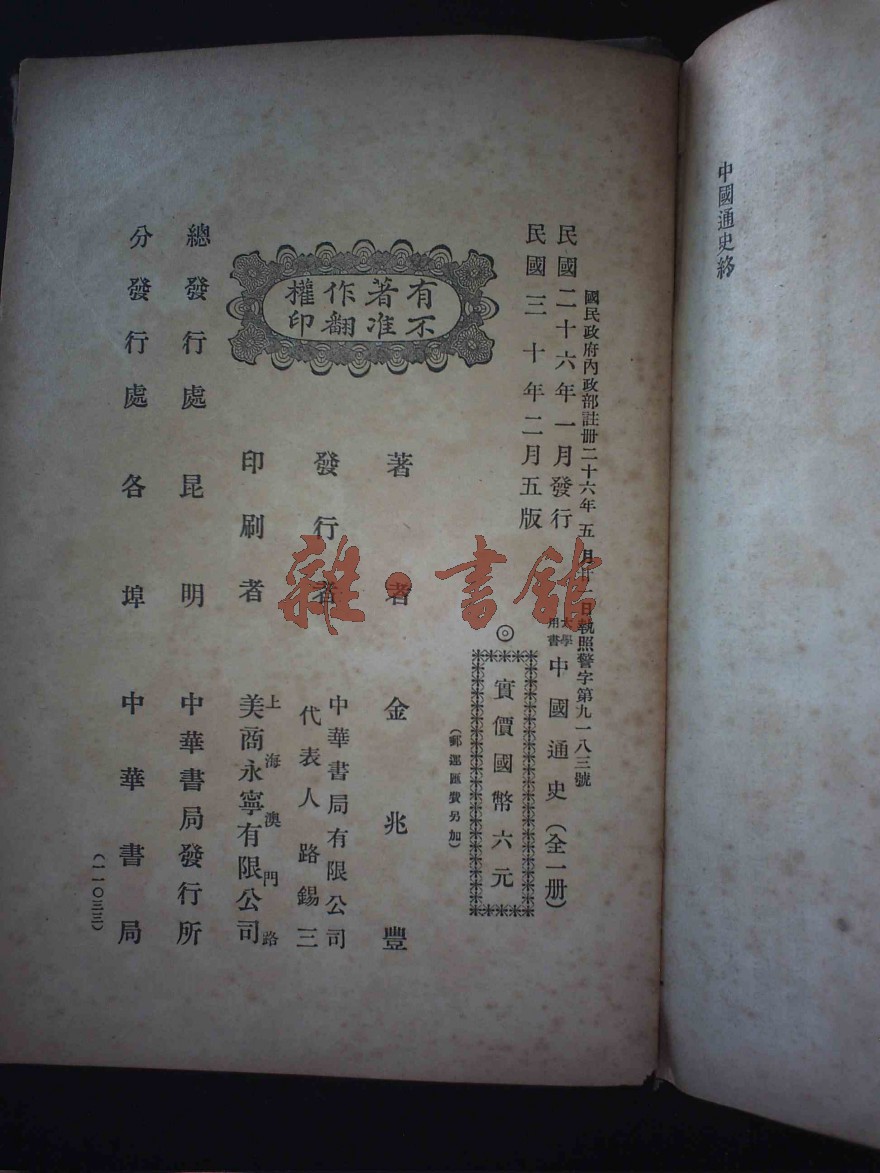 中國通史終
國民政府內政部註冊二十六年五月廿一日執照警字第九一八三號
民國二十六年一月發行
民國三十年二月五版
大學用書
中國通史（全一冊）
◎
實價國幣六元
（郵運匯費另加）
有著作權
不准翻印
著者
金兆豐
發行者
中華書局有限公司
代表人路錫三
印刷者
上海澳門路
美商永寧有限公司
總發行處
昆明
中華書局發行所
分發行處
各埠
中華書局
（一一〇三三）
雜·書館